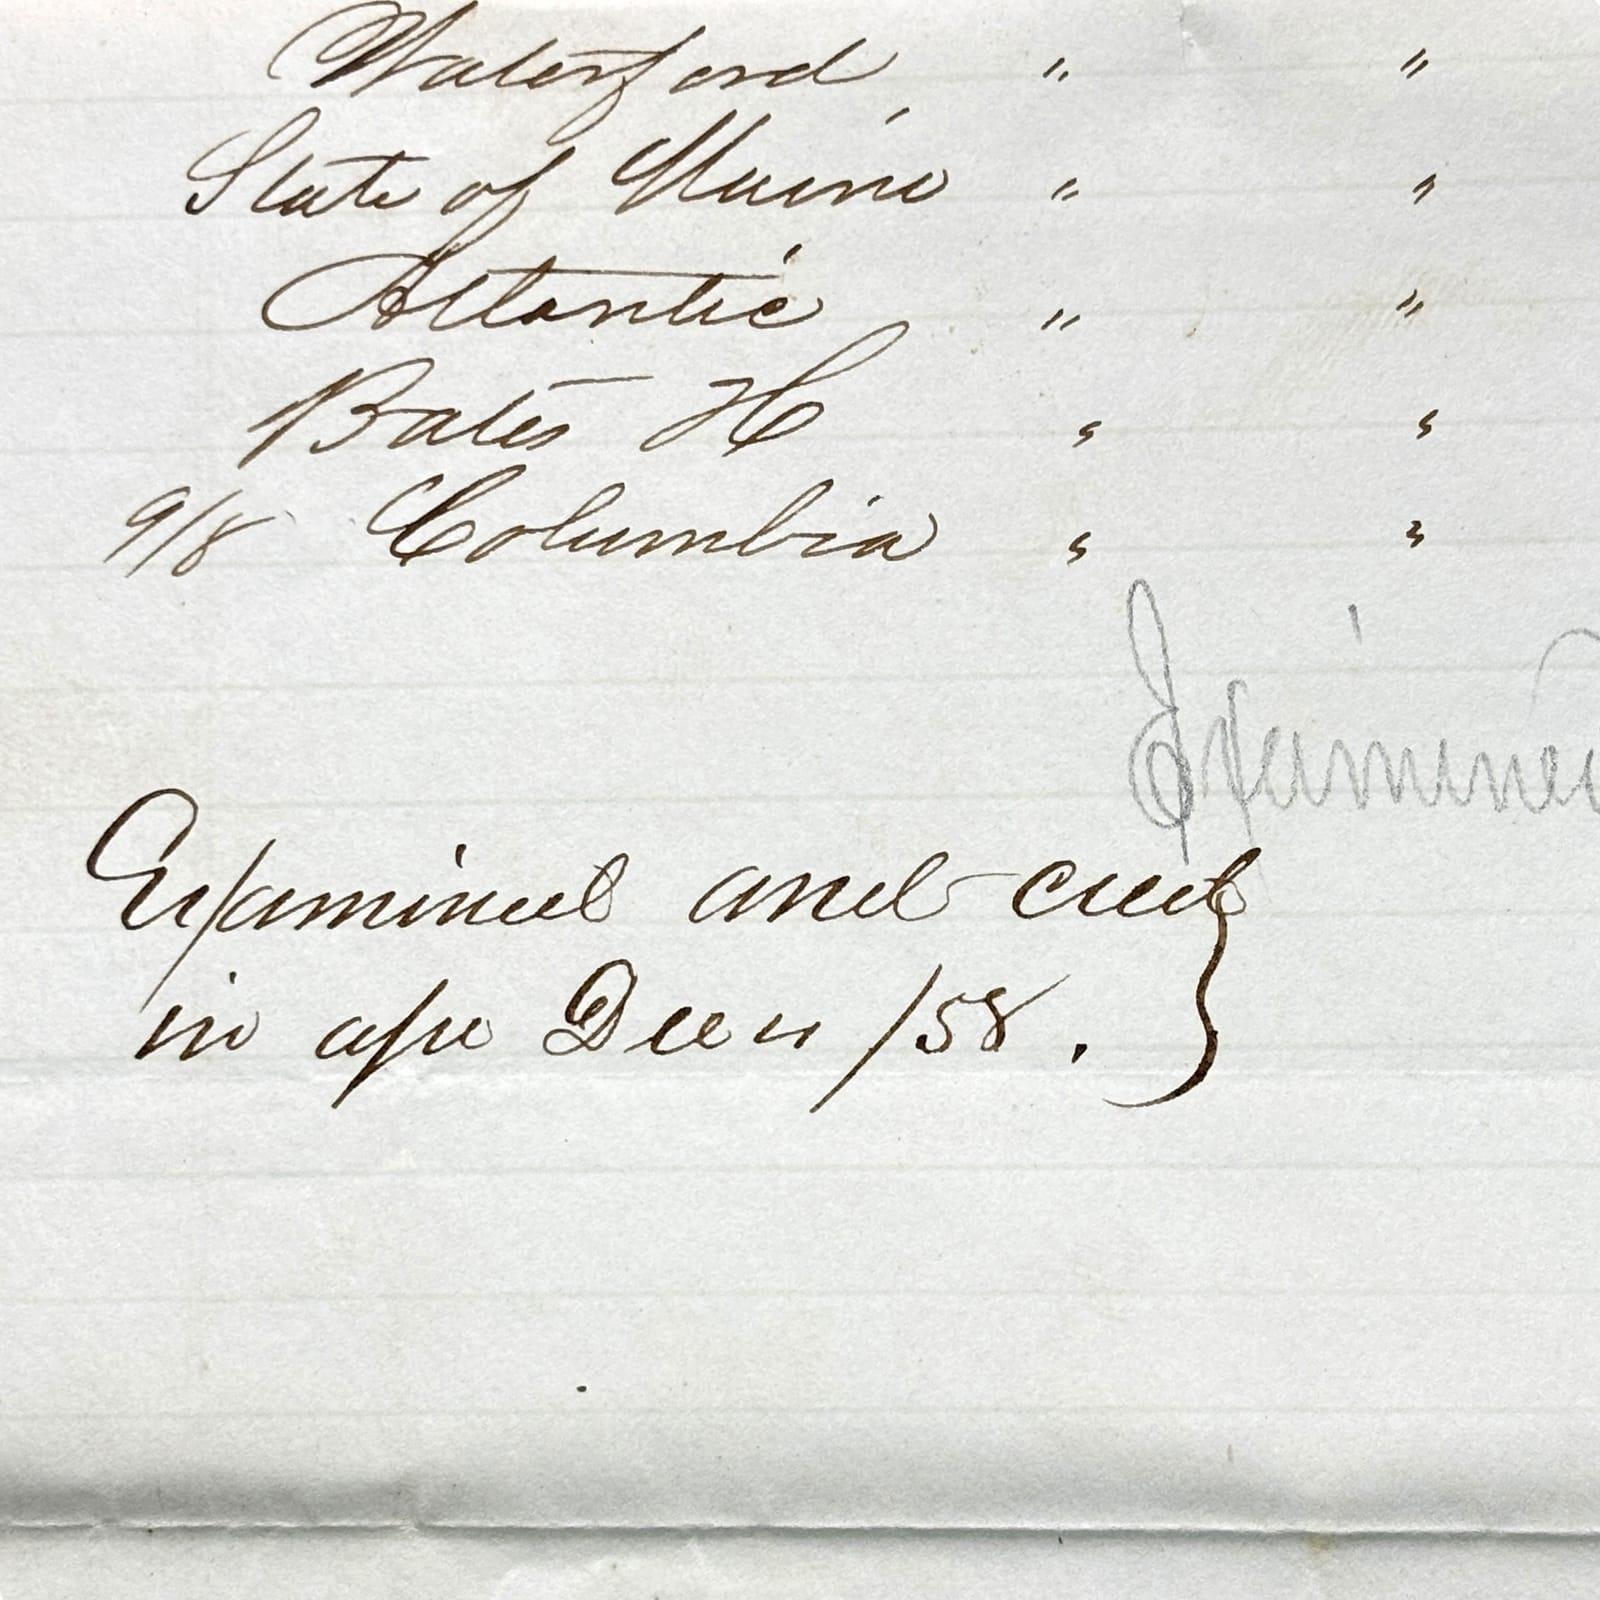 Waterford " "
State of Maine " "
Atlantic " "
Bates H " "
9/8 Columbia " "
Examined
Examined and
in /58.